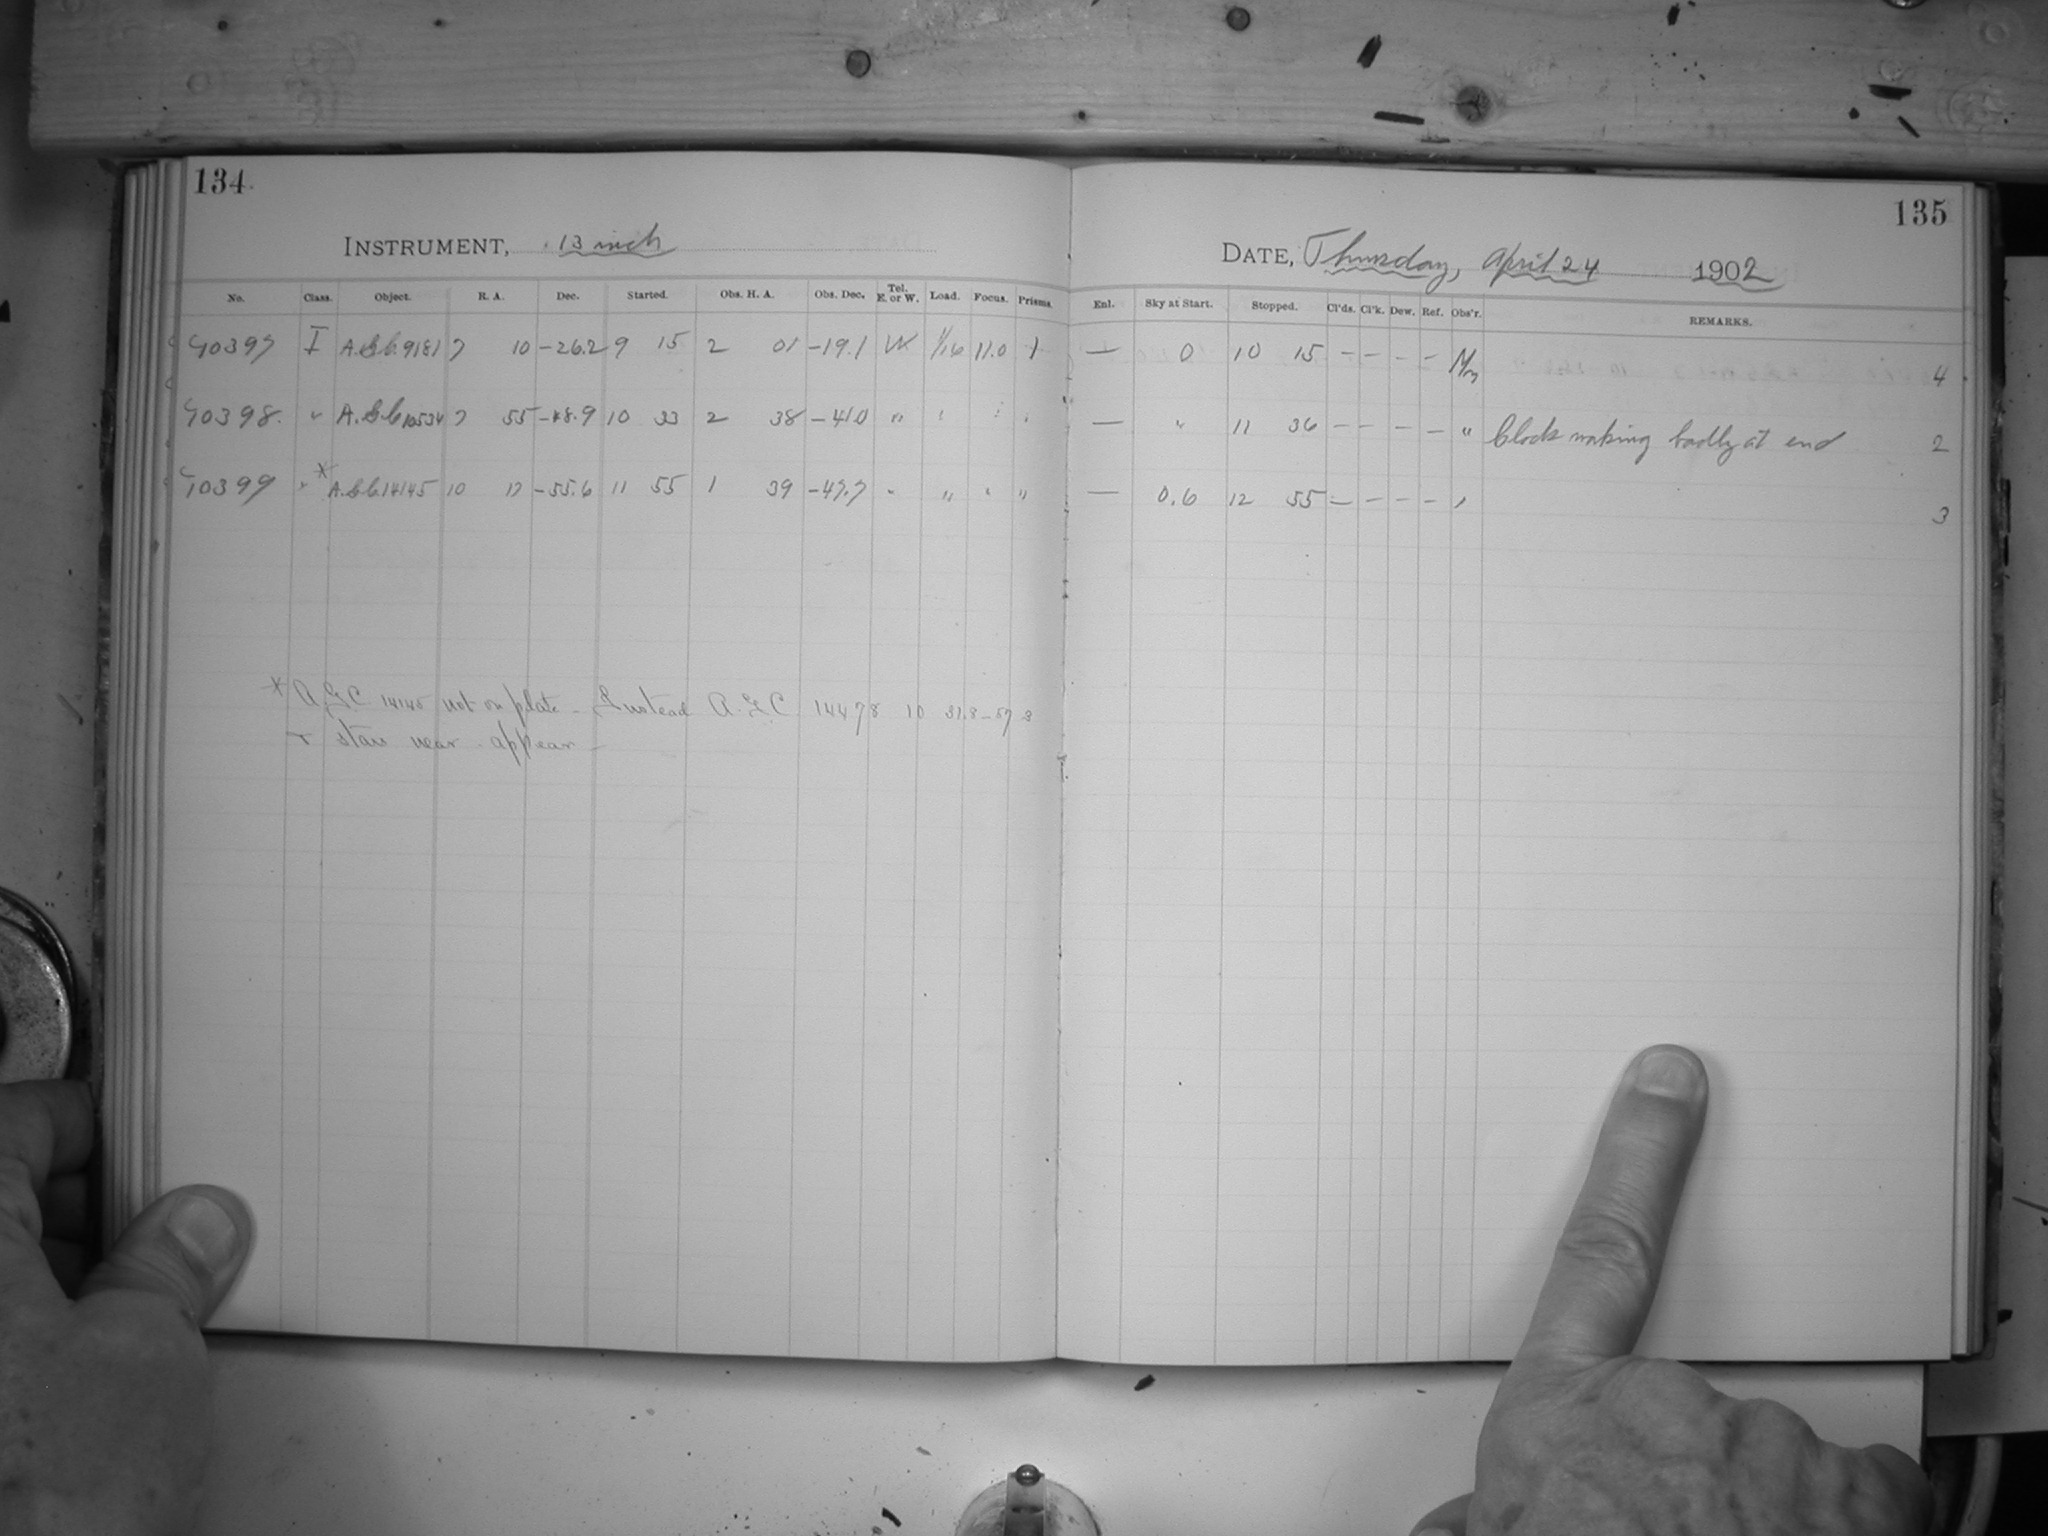 134
135
INSTRUMENT, 13 inch
DATE, Thursday, April 24 1902
No. Class. Object. R. A. Dec. Started. Obs. H. A. Obs. Dec. Tel. E. or W. Load. Focus. Prisms. Enl. Sky at Start. Stopped. Cl'ds. Cl'k. Dew. Ref. Obs'r. REMARKS.
40397 I A.G.C. 9181 7 10 -26.2 9 15 2 01 -19.1 W. 1/16 11.0 1 — 0 10 15 - - - - 4
40398. " A.G.C. 10534 7 55 -48.9 10 33 2 38 -41.0 " — " 11 36 - - - - " Clock making badly at end 2
40399 " * A.G.C. 14145 10 17 -55.6 11 55 1 39 -47.7 " " " " — 0.6 12 55 - - - - " 3
* A.G.C 14145 not on plate - Instead A.G.C. 14478 10 31.8 -57 3
+ stars near appear -